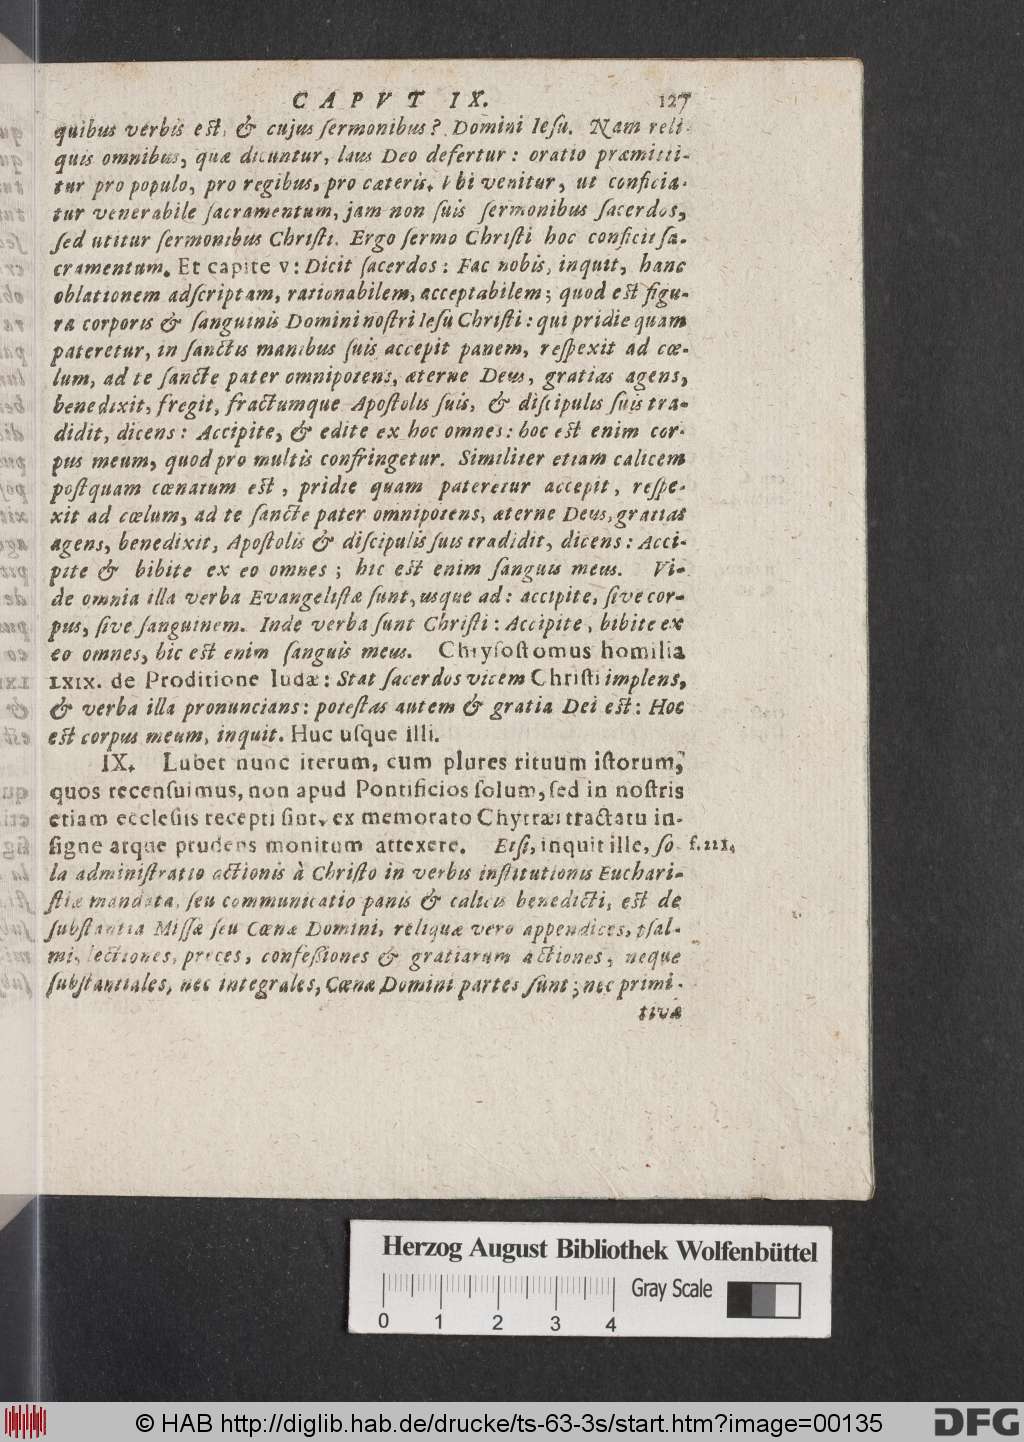 CAPVT IX. 127
quibus verbis est, & cujus sermonibus? Domini Iesu. Nam reli-
quis omnibus, quæ dicuntur, laus Deo defertur: oratio præmitti-
tur pro populo, pro regibus, pro cæteris. Vbi venitur, ut conficia-
tur venerabile sacramentum, jam non suis sermonibus sacerdos,
sed utitur sermonibus Christi. Ergo sermo Christi hoc conficit sa-
cramentum. Et capite v: Dicit sacerdos: Fac nobis, inquit, hanc
oblationem adscriptam, rationabilem, acceptabilem; quod est figu-
ra corporis & sanguinis Domini nostri Iesu Christi: qui pridie quam
pateretur, in sanctis manibus suis accepit panem, respexit ad cœ-
lum, ad te sancte pater omnipotens, æterne Deus, gratias agens,
benedixit, fregit, fractumque Apostolis suis, & discipulis suis tra-
didit, dicens: Accipite, & edite ex hoc omnes: hoc est enim cor-
pus meum, quod pro multis confringetur. Similiter etiam calicem
postquam cœnatum est, pridie quam pateretur accepit, respe-
xit ad cœlum, ad te sancte pater omnipotens, æterne Deus, gratias
agens, benedixit, Apostolis & discipulis suis tradidit, dicens: Acci-
pite & bibite ex eo omnes; hic est enim sanguis meus. Vi-
de omnia illa verba Evangelistæ sunt, usque ad: accipite, sive cor-
pus, sive sanguinem. Inde verba sunt Christi: Accipite, bibite ex
eo omnes, hic est enim sanguis meus. Chrysostomus homilia
LXIX. de Proditione Iudæ: Stat sacerdos vicem Christi implens,
& verba illa pronuncians: potestas autem & gratia Dei est: Hoc
est corpus meum, inquit. Huc usque illi.
IX. Lubet nunc iterum, cum plures rituum istorum,
quos recensuimus, non apud Pontificios solum, sed in nostris
etiam ecclesiis recepti sint, ex memorato Chytræi tractatu in-
signe atque prudens monitum attexere. Etsi, inquit ille, so- f. III.
la administratio actionis à Christo in verbis institutionis Euchari-
stiæ mandata, seu communicatio panis & calicis benedicti, est de
substantia Missæ seu Cœnæ Domini, reliquæ vero appendices, psal-
mi, lectiones, preces, confessiones & gratiarum actiones, neque
substantiales, nec integrales, Cœnæ Domini partes sunt; nec primi-
tivæ
Herzog August Bibliothek Wolfenbüttel
Gray Scale
0 1 2 3 4
© HAB http://diglib.hab.de/drucke/ts-63-3s/start.htm?image=00135 DFG